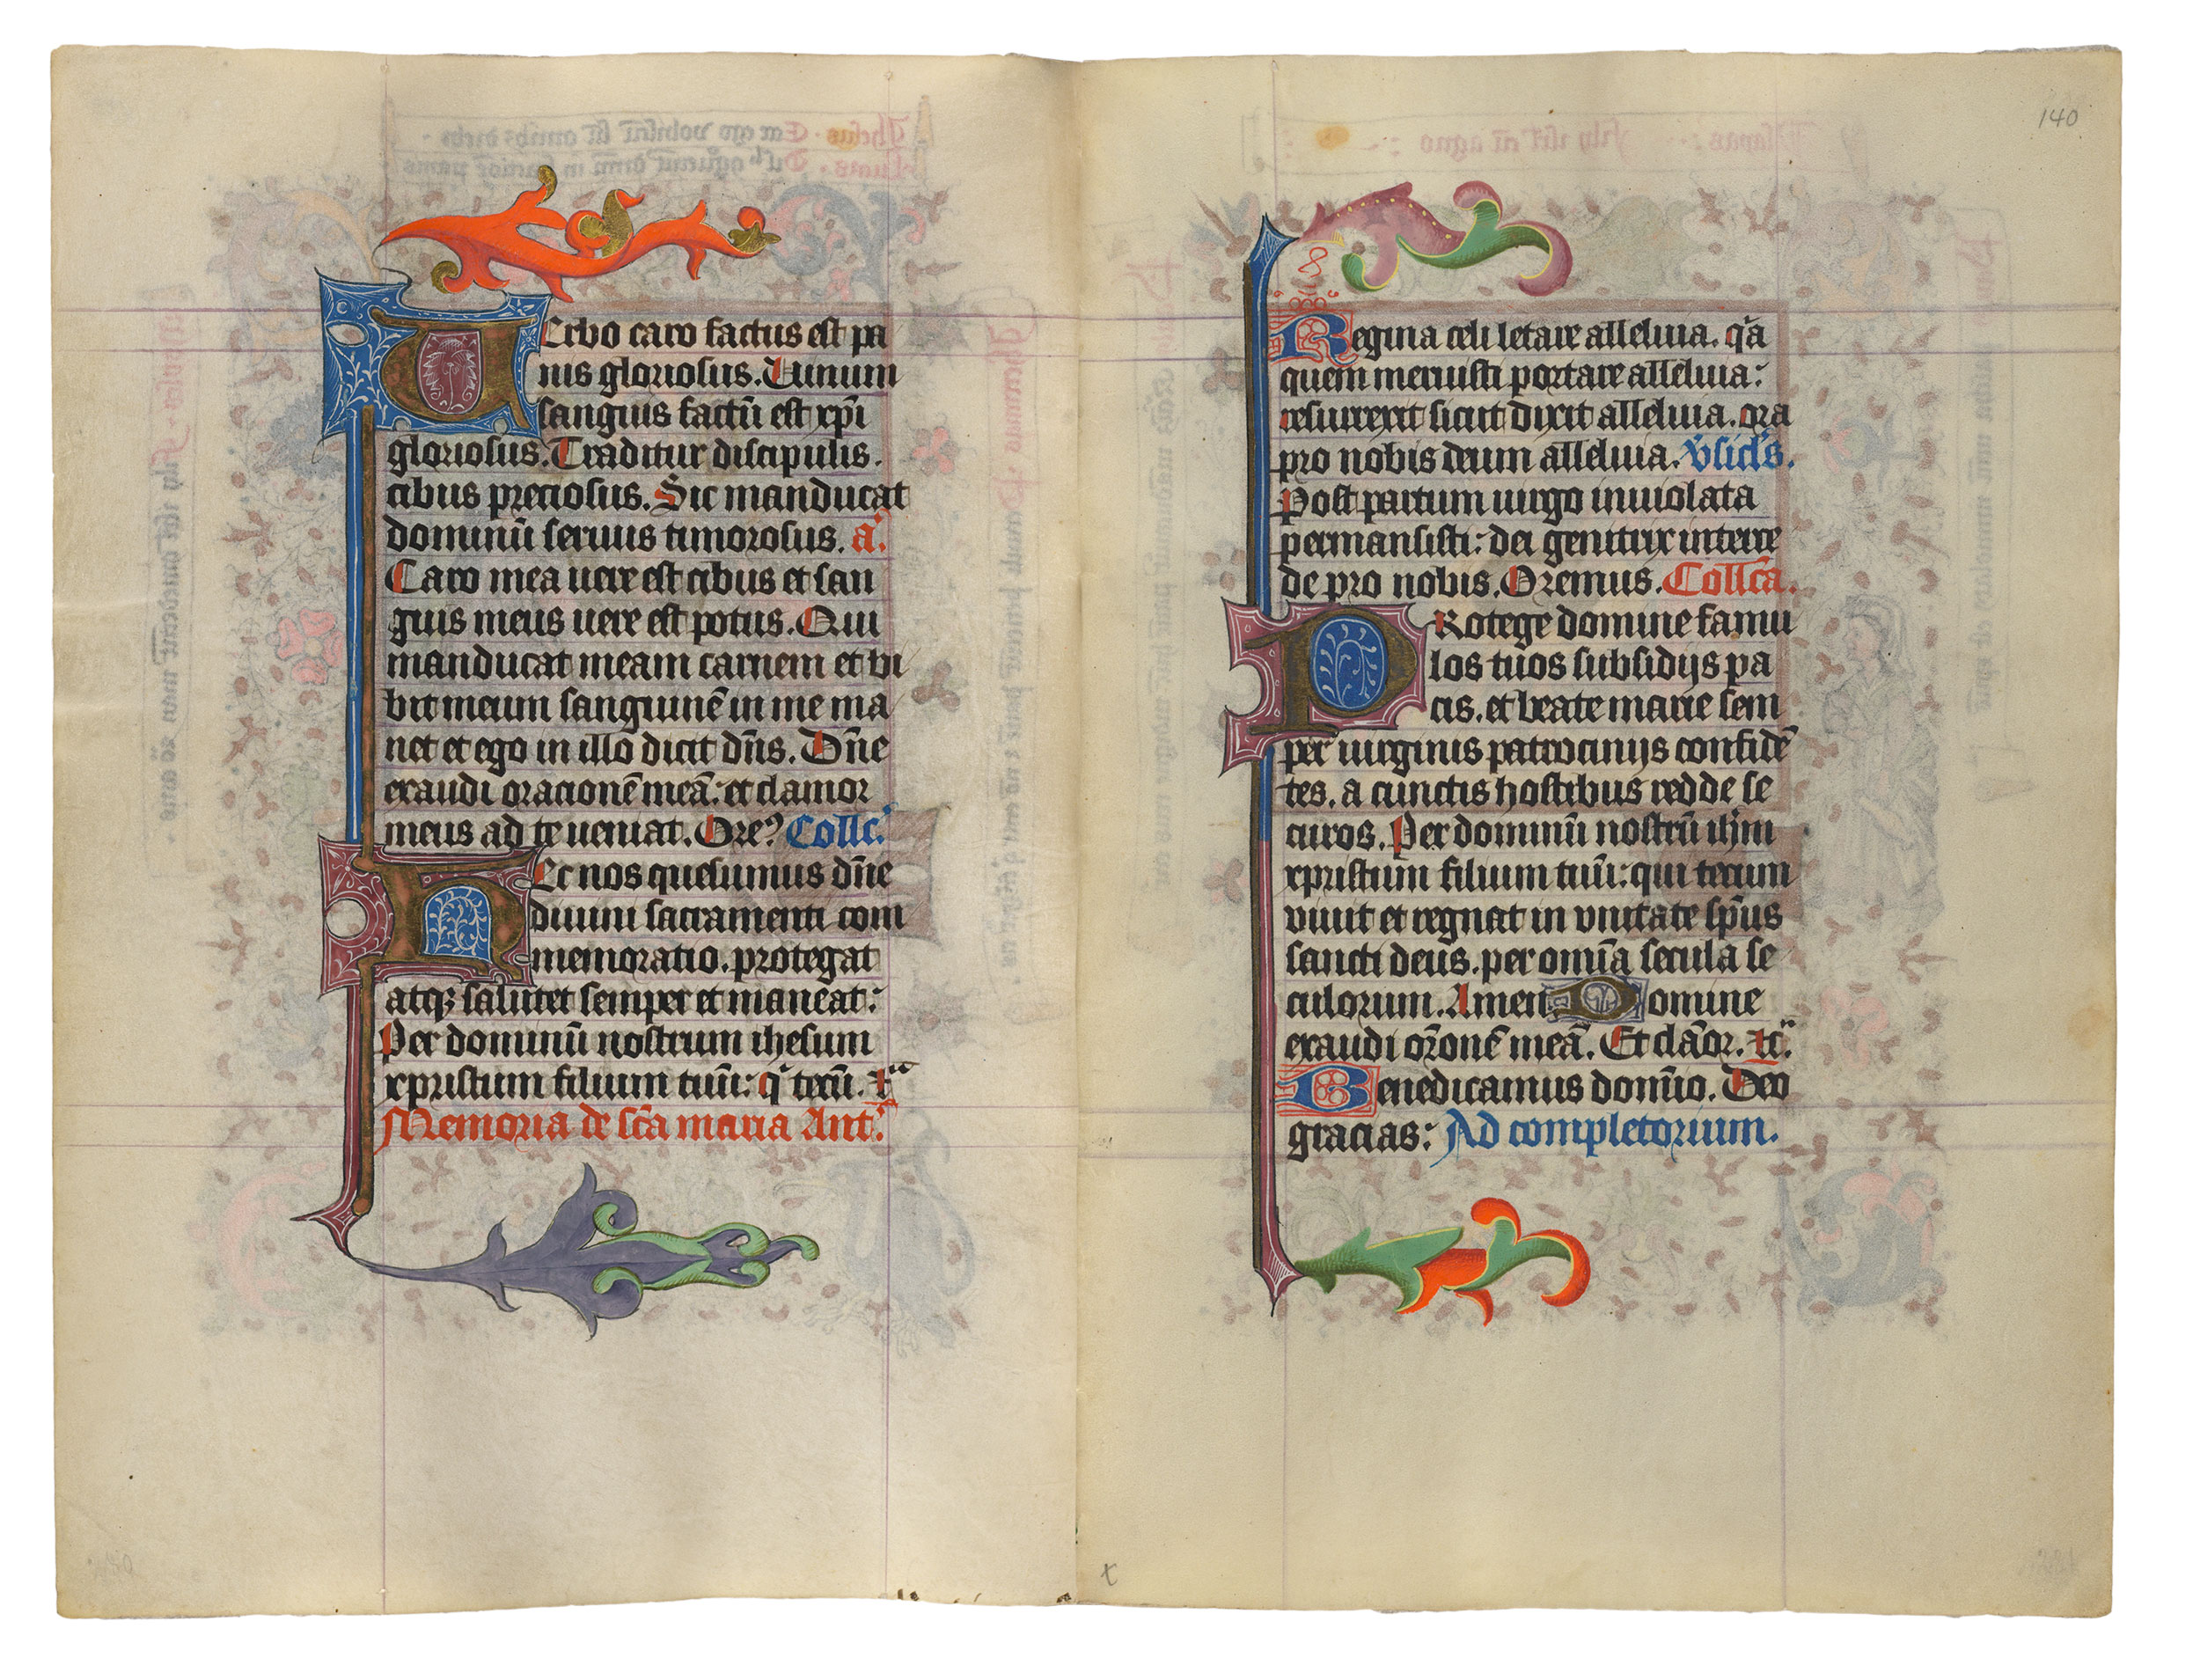 Verbo caro factus est pa
nis gloriosus. Vinum
sanguis factū est xp̄i
gloriosus. Traditur discipulis.
cibus preciosus. Sic manducat
dominū seruus timorosus. a.
Caro mea uere est cibus et san
guis meus uere est potus. Qui
manducat meam carnem et bi
bit meum sanguinē in me ma
net et ego in illo dicit dn̄s. Dn̄e
exaudi oracionē meā: et clamor
meus ad te ueniat. Oreꝰ Collc̄.
Hec nos quesumus dn̄e
diuini sacramenti com
memoratio. protegat
atqꝫ saluet semper et maneat:
Per dominū nostrum ihesum
xpristum filium tuū: q̄ tecū. ⁊ᷓ
Memoria de sc̄a maria Ant.
140
8
Regina celi letare alleluia. qͣa
quem meruisti portare alleluia:
resurrexit sicut dixit alleluia. ora
pro nobis deum alleluia. v̄sicls̄.
Post partum uirgo inuiolata
permansisti: dei genitrix interce
de pro nobis. Oremus. Collc̄a.
Protege domine famu
los tuos subsidijs pa
cis. et beate marie sem
per uirginis patrocinijs confidē
tes. a cunctis hostibus redde se
curos. Per dominū nostrū ih̄m
xpristum filium tuū: qui tecum
viuit et regnat in vnitate sp̄us
sancti deus. per om̄ia secula se
culorum. Amen Domine
exaudi or̄onē meā. Et clāor. ⁊c̄.
Benedicamus domīo. Deo
gracias: Ad completorium.